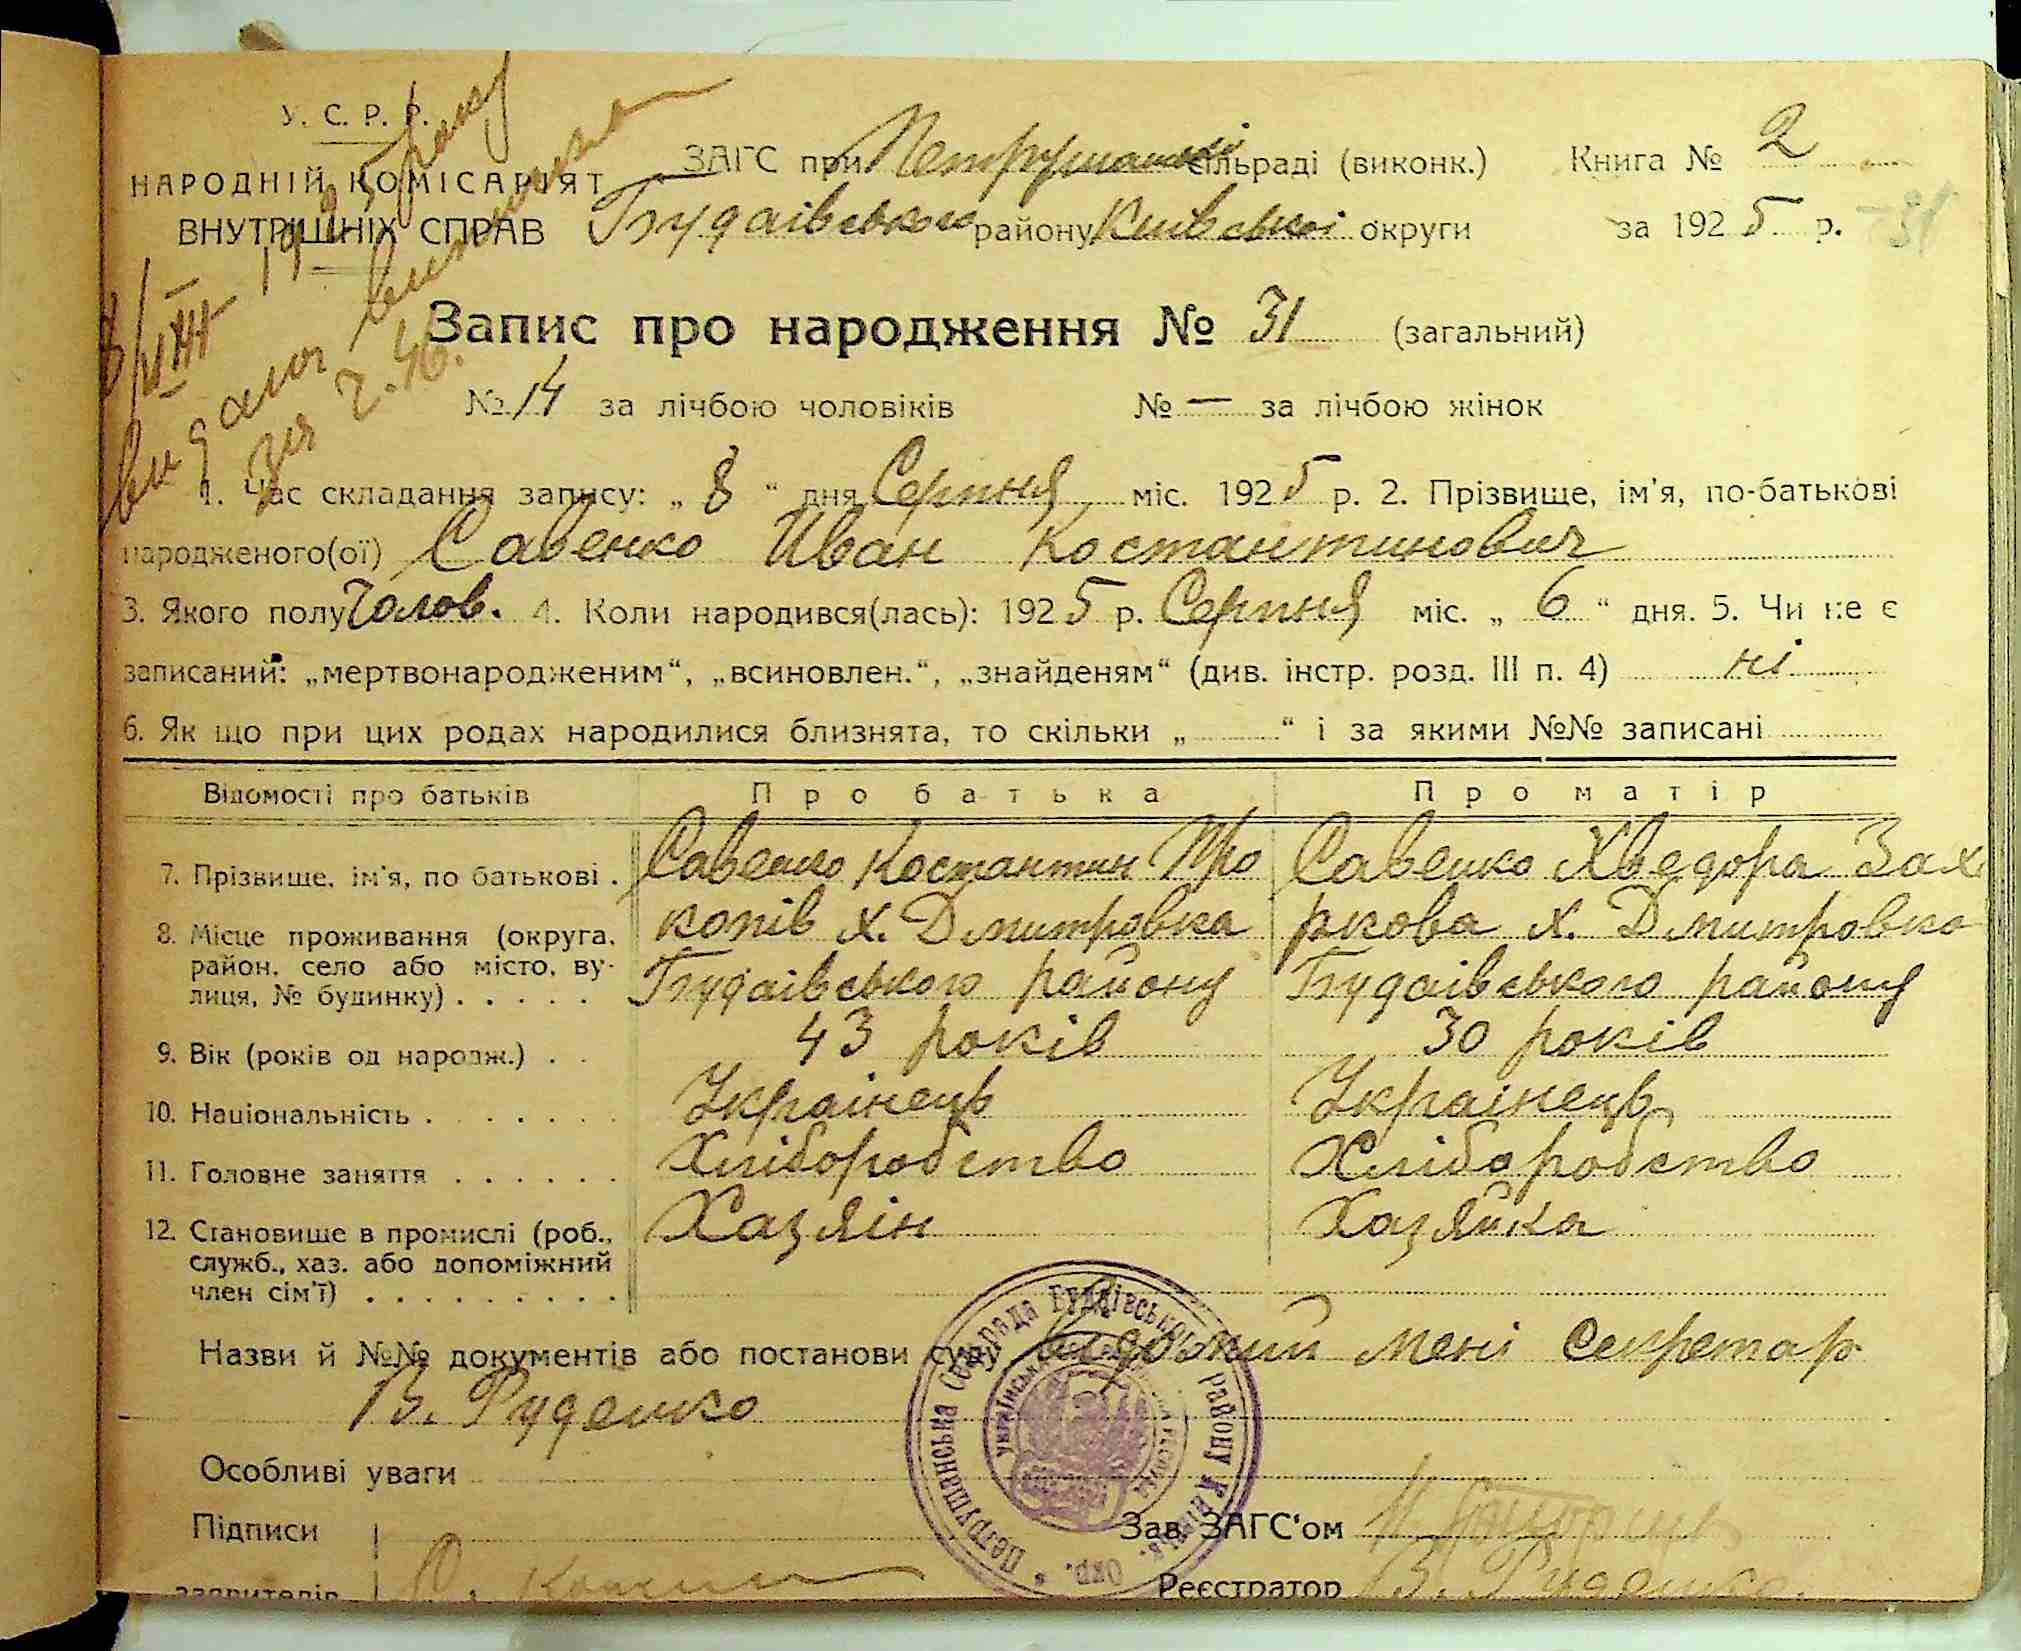 У. С. Р. Р.
НАРОДНІЙ КОМІСАРІЯТ
ВНУТРІШНІХ СПРАВ
ЗАГС при Петрушанській сільраді (виконк.) Книга № 2
Будаівського району Київської округи за 1925 р. 31
8/VIII 1925 року
видано виписка
за ч. 46.
Запис про народження № 31 (загальний)
№ 14 за лічбою чоловіків № — за лічбою жінок
1. Час складання запису: „ 8 “ дня Серпня міс. 1925 р. 2. Прізвище, ім'я, по-батькові
народженого(ої) Савенко Иван Костантинович
3. Якого полу Чолов. 4. Коли народився(лась): 1925 р. Серпня міс. „ 6 “ дня. 5. Чи не є
записаний: „мертвонародженим“, „всиновлен.“, „знайденям“ (див. інстр. розд. III п. 4) ні
6. Як що при цих родах народилися близнята, то скільки „ “ і за якими №№ записані
Відомості про батьків Про батька Про матір
7. Прізвище, ім'я, по батькові . Савенко Костантин Про Савенко Хведора Зах
8. Місце проживання (округа, копів х. Дмитровка ркова х. Дмитровка
район, село або місто, ву-
лиця, № будинку) . . . . . Будаівського району Будаівського району
9. Вік (років од народж.) . . 43 років 30 років
10. Національність . . . . . . . Украінець Украінець
11. Головне заняття . . . . . . Хліборобство Хліборобство
12. Становище в промислі (роб., Хазяін Хазяйка
служб., хаз. або допоміжний
член сім'ї) . . . . . . . . .
Назви й №№ документів або постанови суду Відомий мені Секретар
В. Руденко
Петрушанська Сельрада Будаівського району Київів. Окр.
Особливі уваги
Підписи Зав. ЗАГС'ом
заявителів Реєстратор В. Руденко.